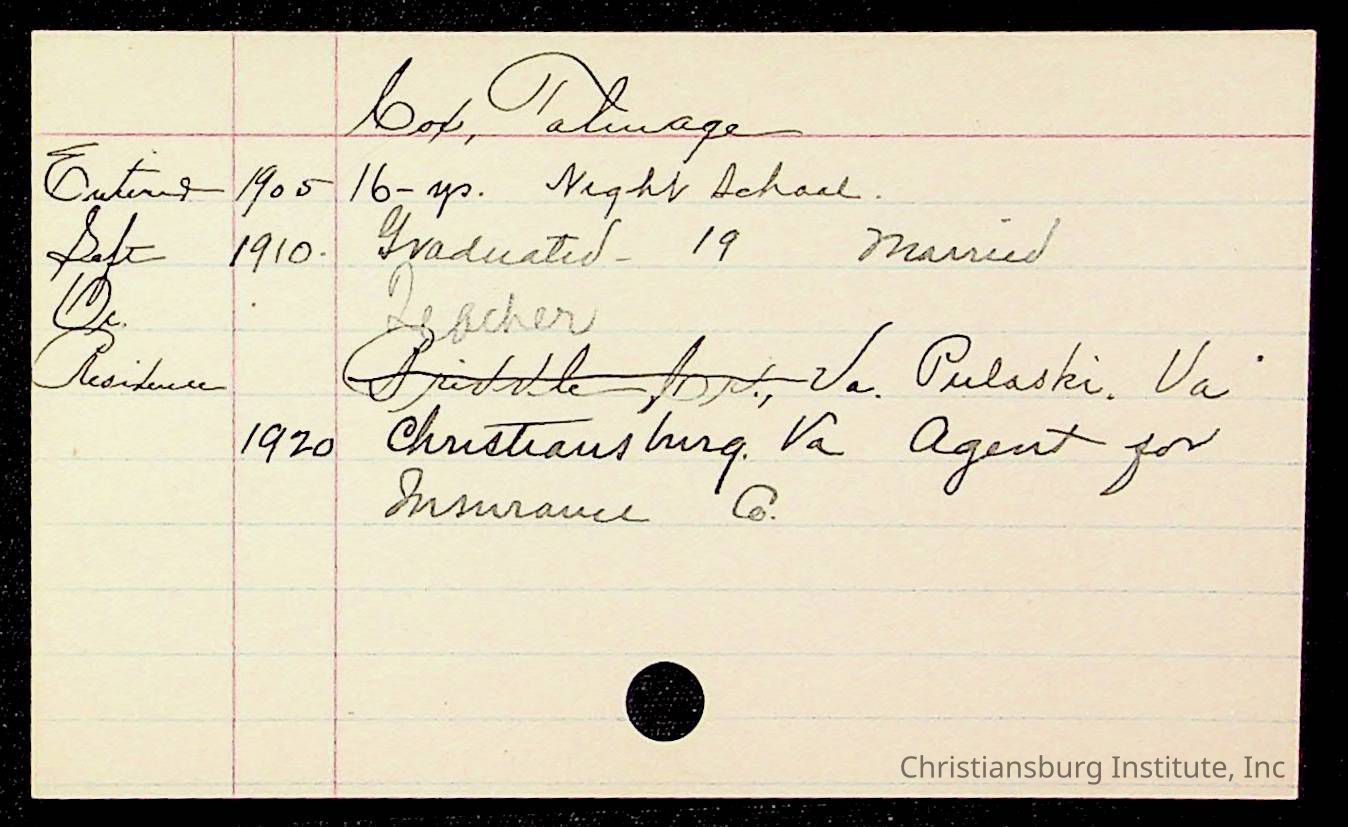 Cox, Talmage
Entered 1905 16- ys. Night School.
Left 1910. Graduated- 19 Married
Oc. Teacher
Residence Va. Pulaski. Va
1920 Christiansburg. Va Agent for
Insurance Co.
Christiansburg Institute, Inc